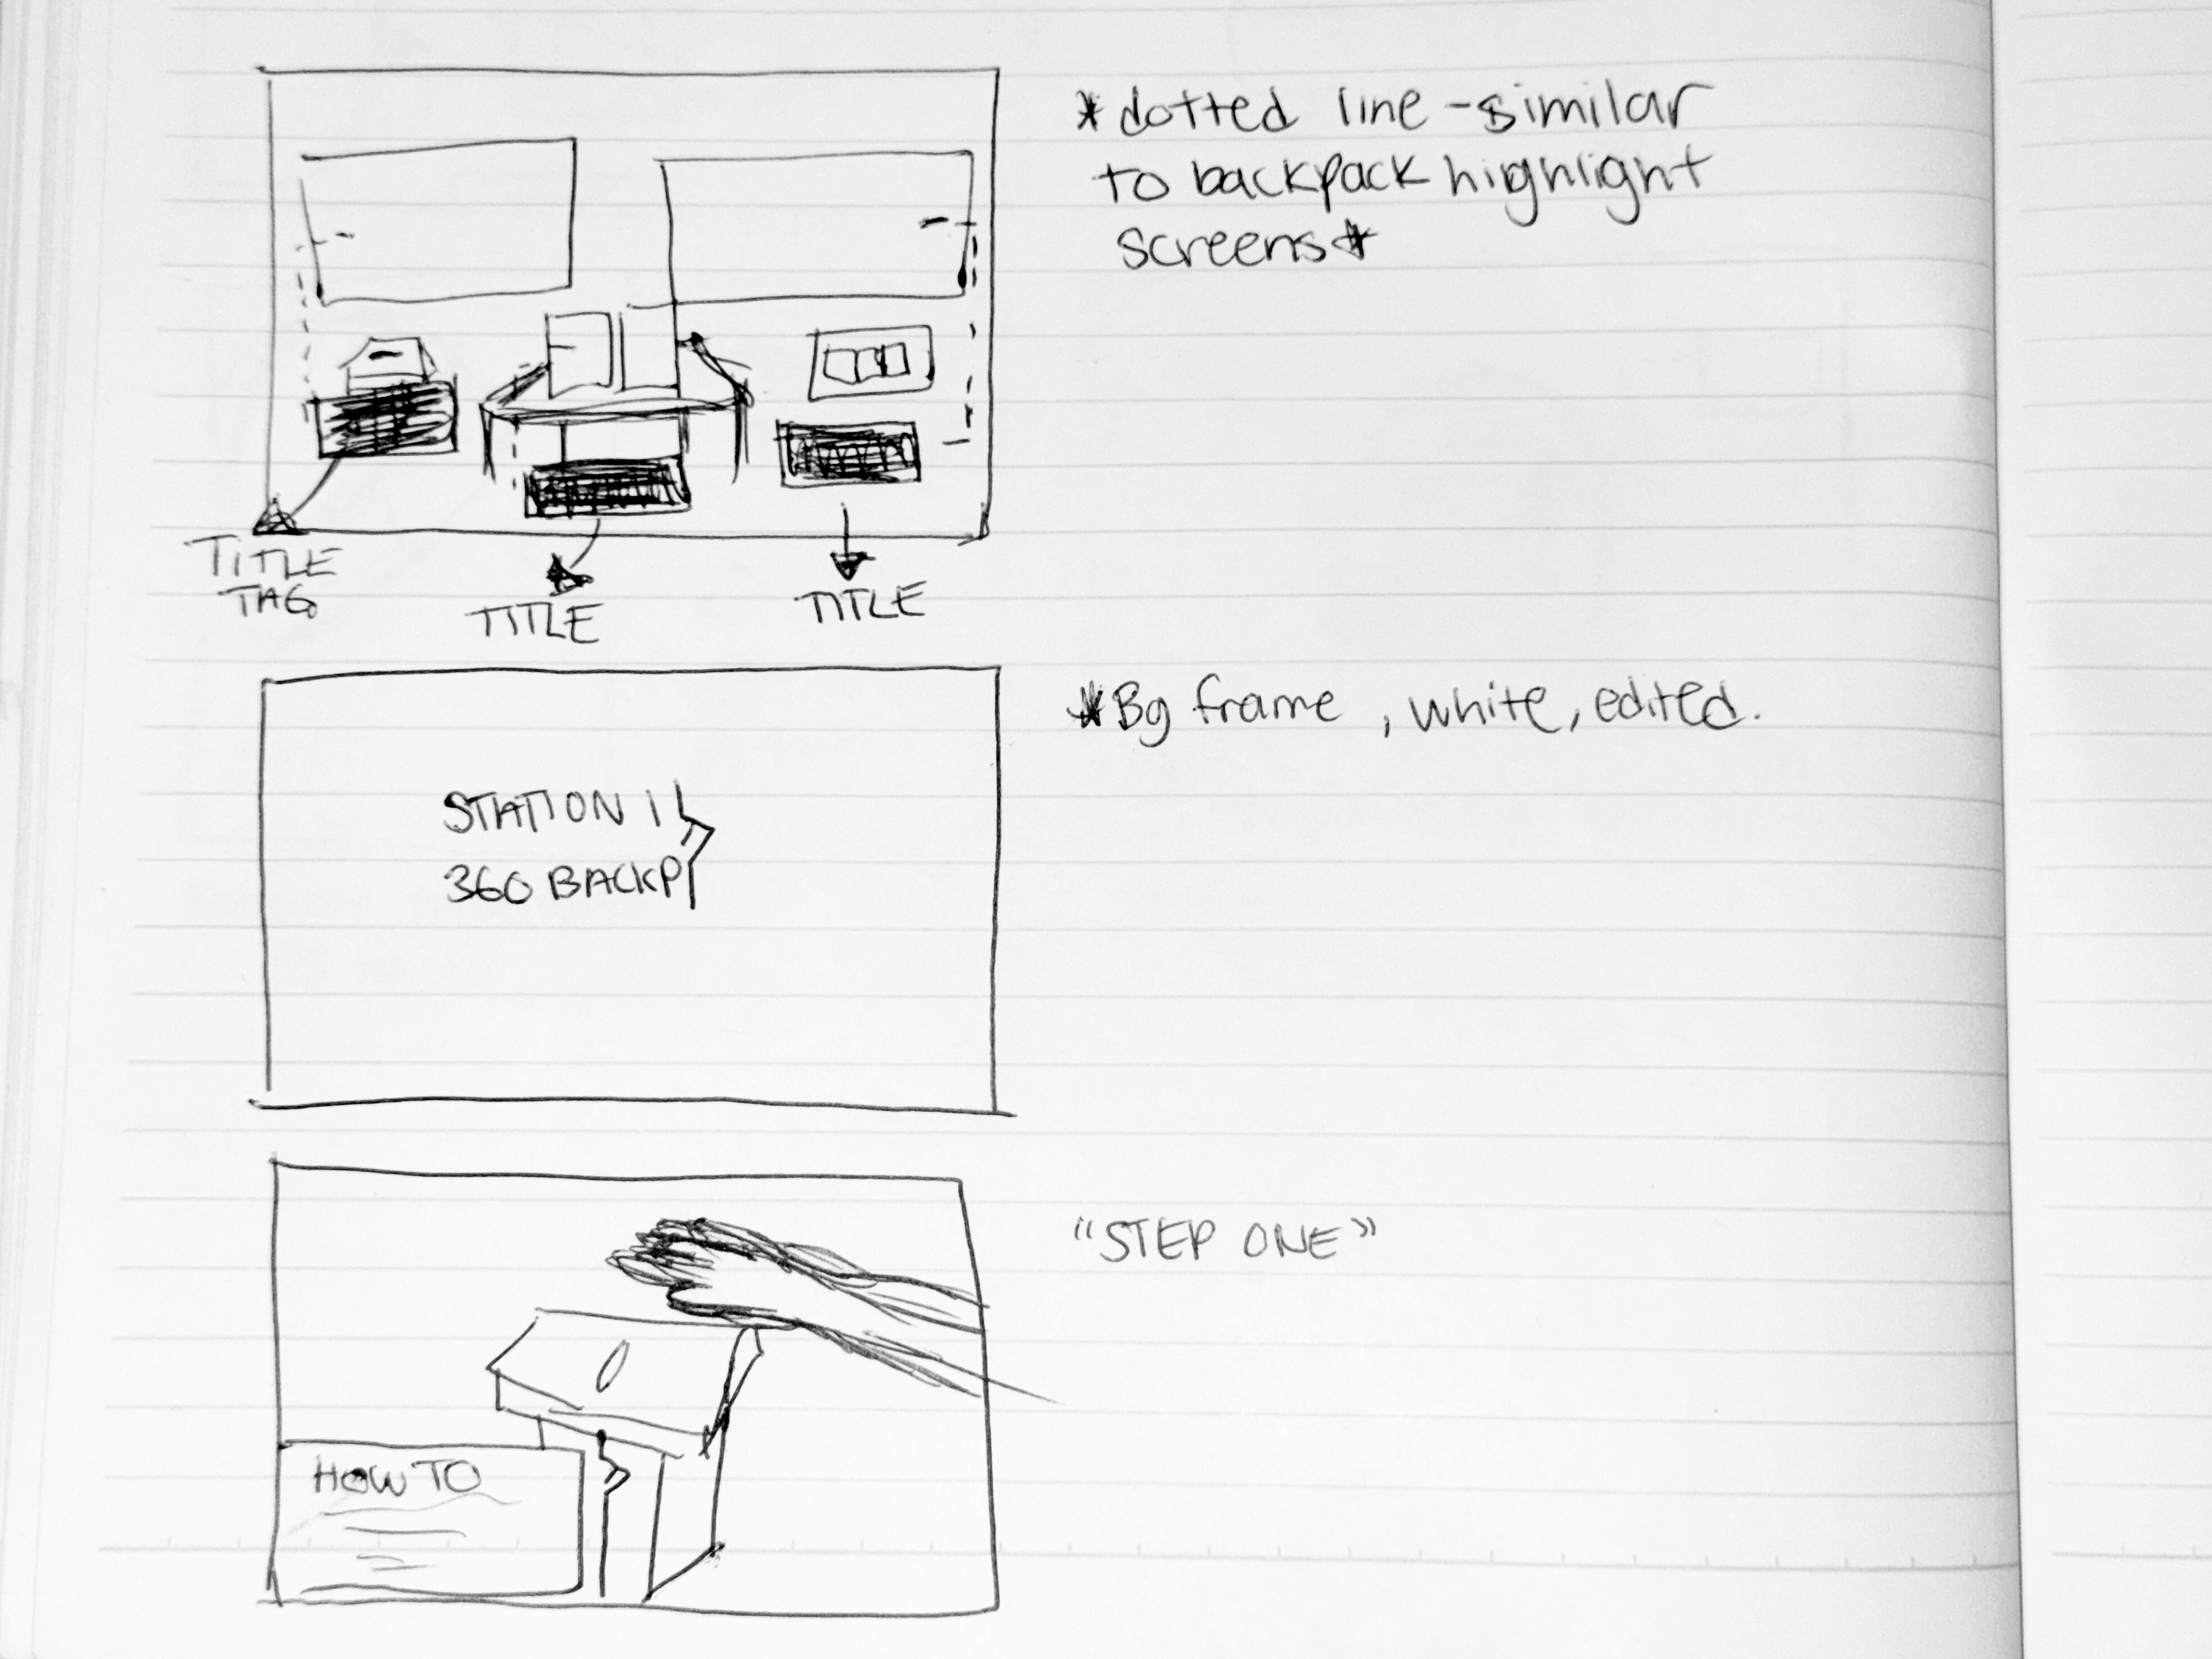 *dotted line - similar
to backpack highlight
screens*
TITLE
TAG
TITLE
TITLE
*Bg frame, white, edited.
STATION 1
360 BACKP
"STEP ONE"
HOW TO